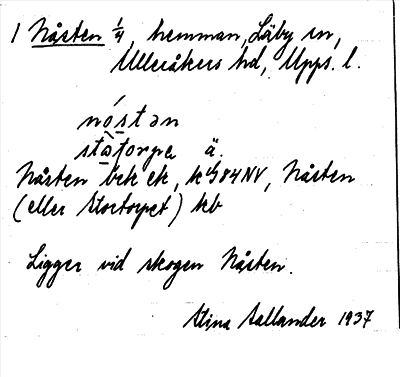 1 Nåsten ¼, hemman, Läby sn,
Ulleråkers hd, Upps. l.
nóstən
statorpə ä.
Nåsten bek ek, k 4/984 NV, Nåsten
(eller Stortorpet) kb
Ligger vid skogen Nåsten.
Stina Sallander 1937